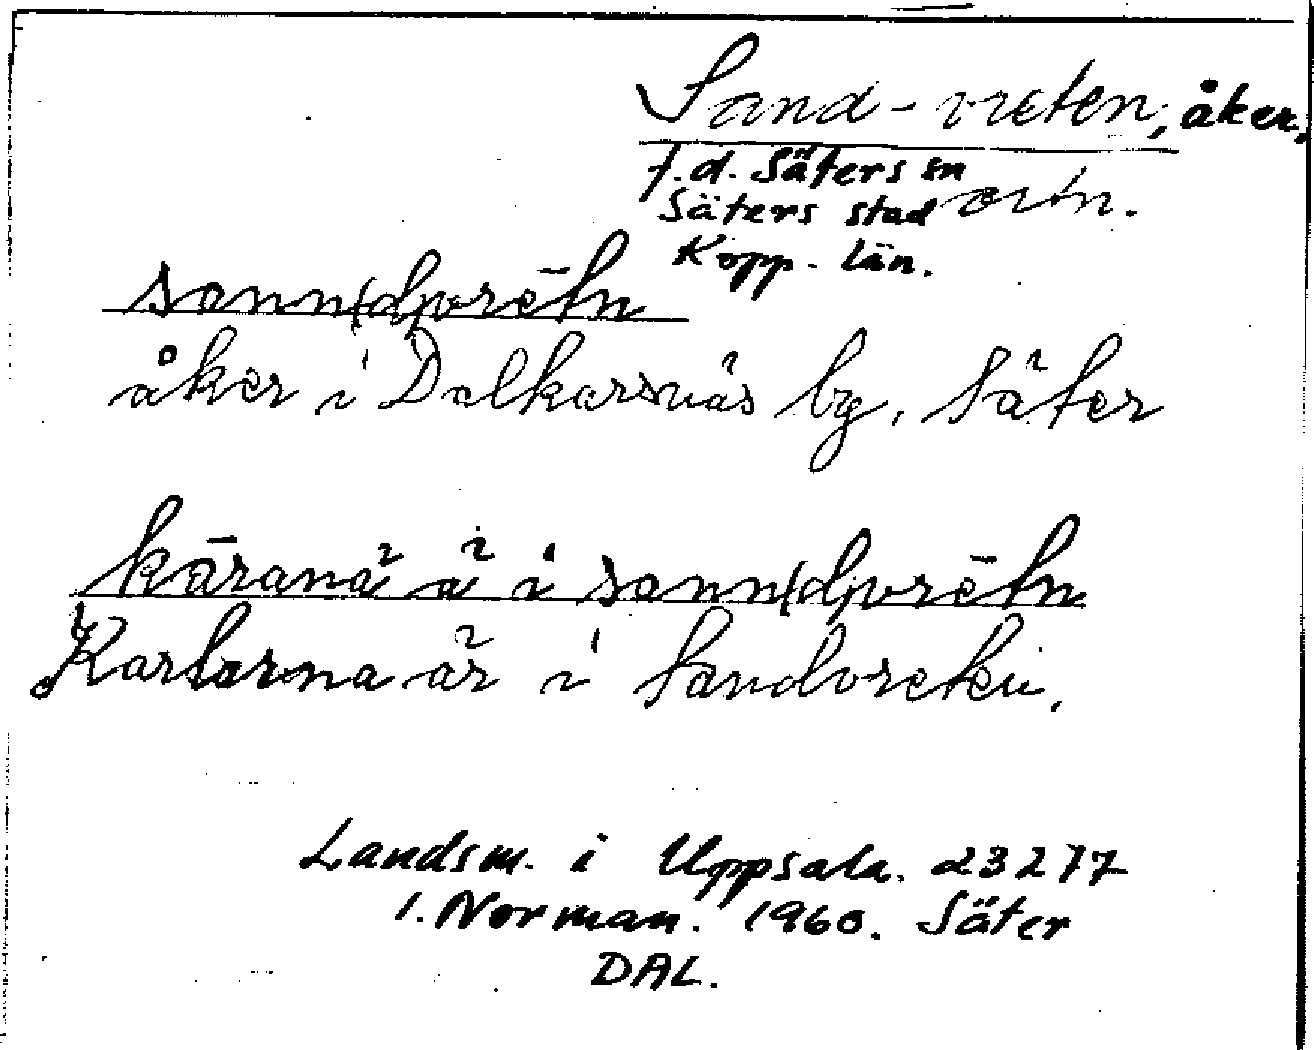 Sand-vreten, åker,
f.d. Säters sn
Säters stad
Kopp. län.
sann(d)vrētn
åker i Dalkarsnäs by, Säter
kārana ä i sann(d)vrētn
Karlarna är i Sandvreten.
Landsm. i Uppsala. 23277
I. Norman. 1960. Säter
DAL.